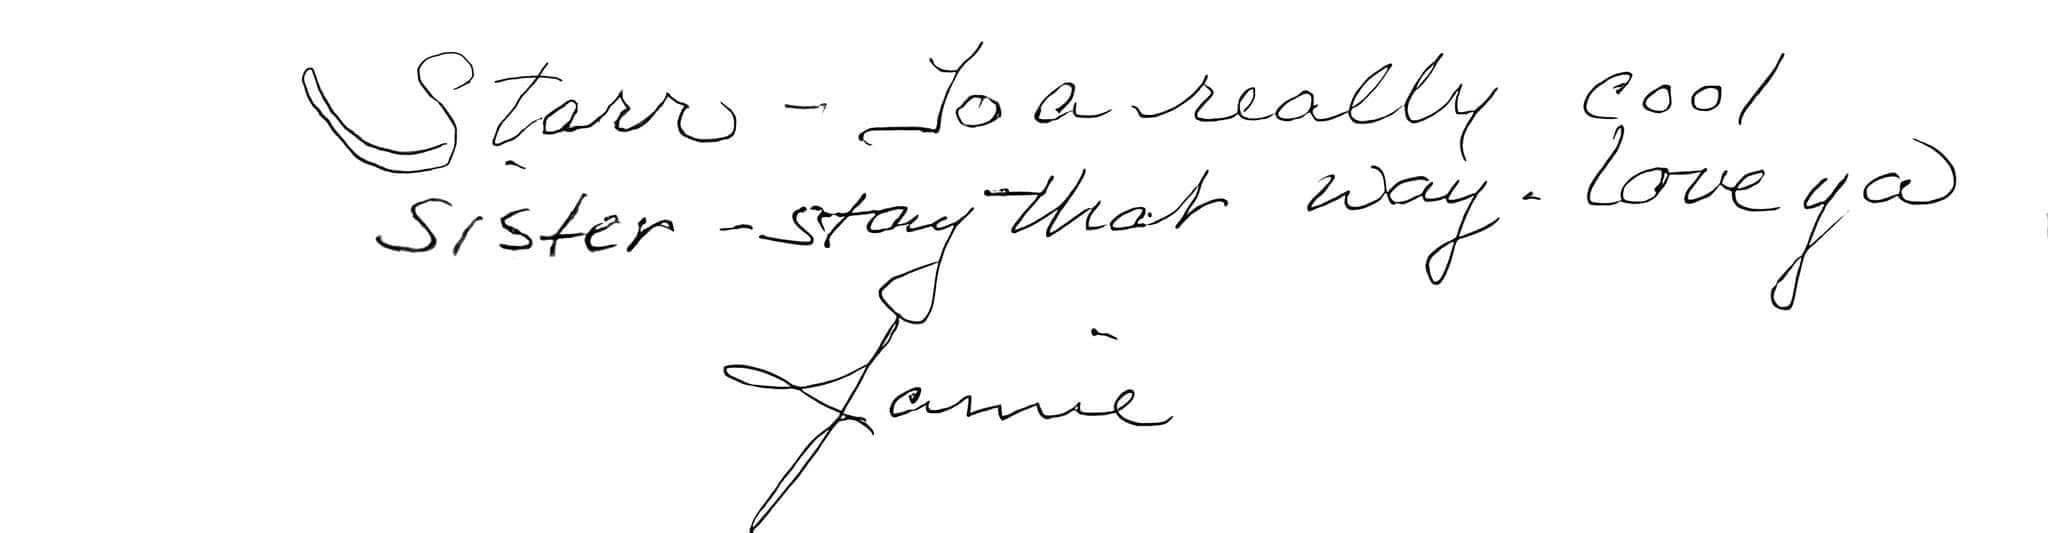 Starr - To a really cool
sister - stay that way. Love ya
Jamie